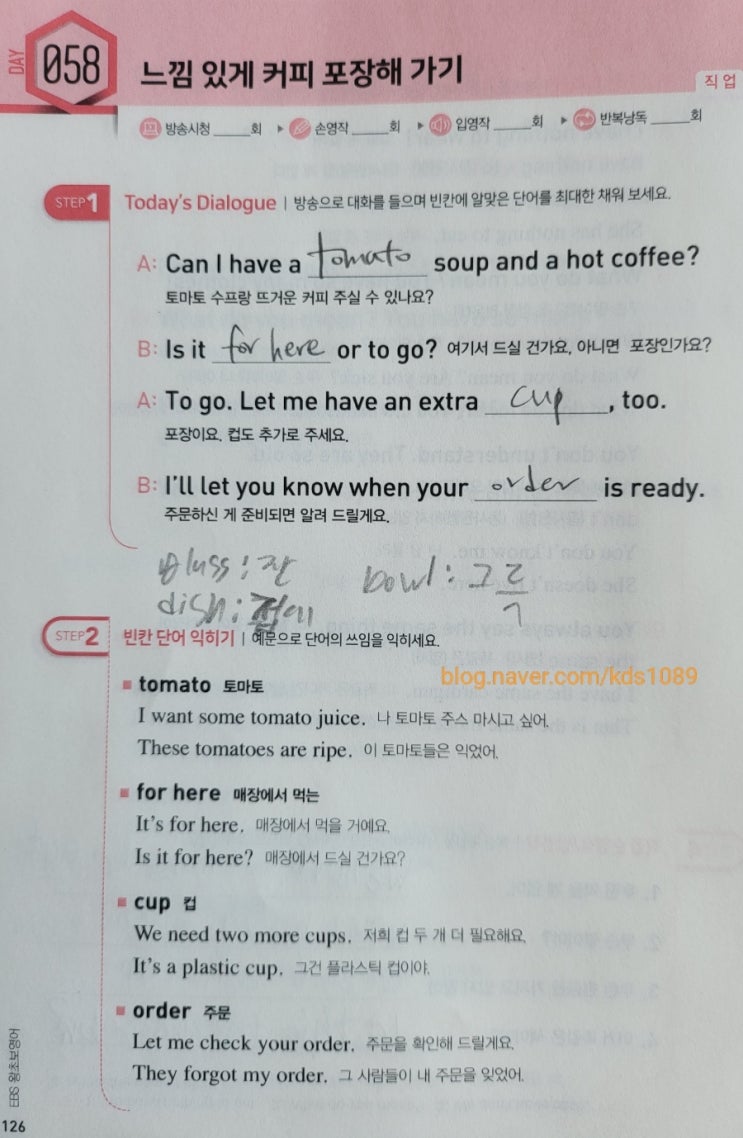 DAY 058 느낌 있게 커피 포장해 가기
직업
방송시청 _____회 ▶ 손영작 _____회 ▶ 입영작 _____회 ▶ 반복낭독 _____회
STEP1 Today's Dialogue | 방송으로 대화를 들으며 빈칸에 알맞은 단어를 최대한 채워 보세요.
A: Can I have a tomato soup and a hot coffee?
토마토 수프랑 뜨거운 커피 주실 수 있나요?
B: Is it for here or to go? 여기서 드실 건가요, 아니면 포장인가요?
A: To go. Let me have an extra cup, too.
포장이요. 컵도 추가로 주세요.
B: I'll let you know when your order is ready.
주문하신 게 준비되면 알려 드릴게요.
: 잔 bowl : 그릇
dish : 접시
STEP2 빈칸 단어 익히기 | 예문으로 단어의 쓰임을 익히세요.
blog.naver.com/kds1089
tomato 토마토
I want some tomato juice. 나 토마토 주스 마시고 싶어.
These tomatoes are ripe. 이 토마토들은 익었어.
for here 매장에서 먹는
It's for here. 매장에서 먹을 거예요.
Is it for here? 매장에서 드실 건가요?
cup 컵
We need two more cups. 저희 컵 두 개 더 필요해요.
It's a plastic cup. 그건 플라스틱 컵이야.
order 주문
Let me check your order. 주문을 확인해 드릴게요.
They forgot my order. 그 사람들이 내 주문을 잊었어.
EBS 왕초보영어
126